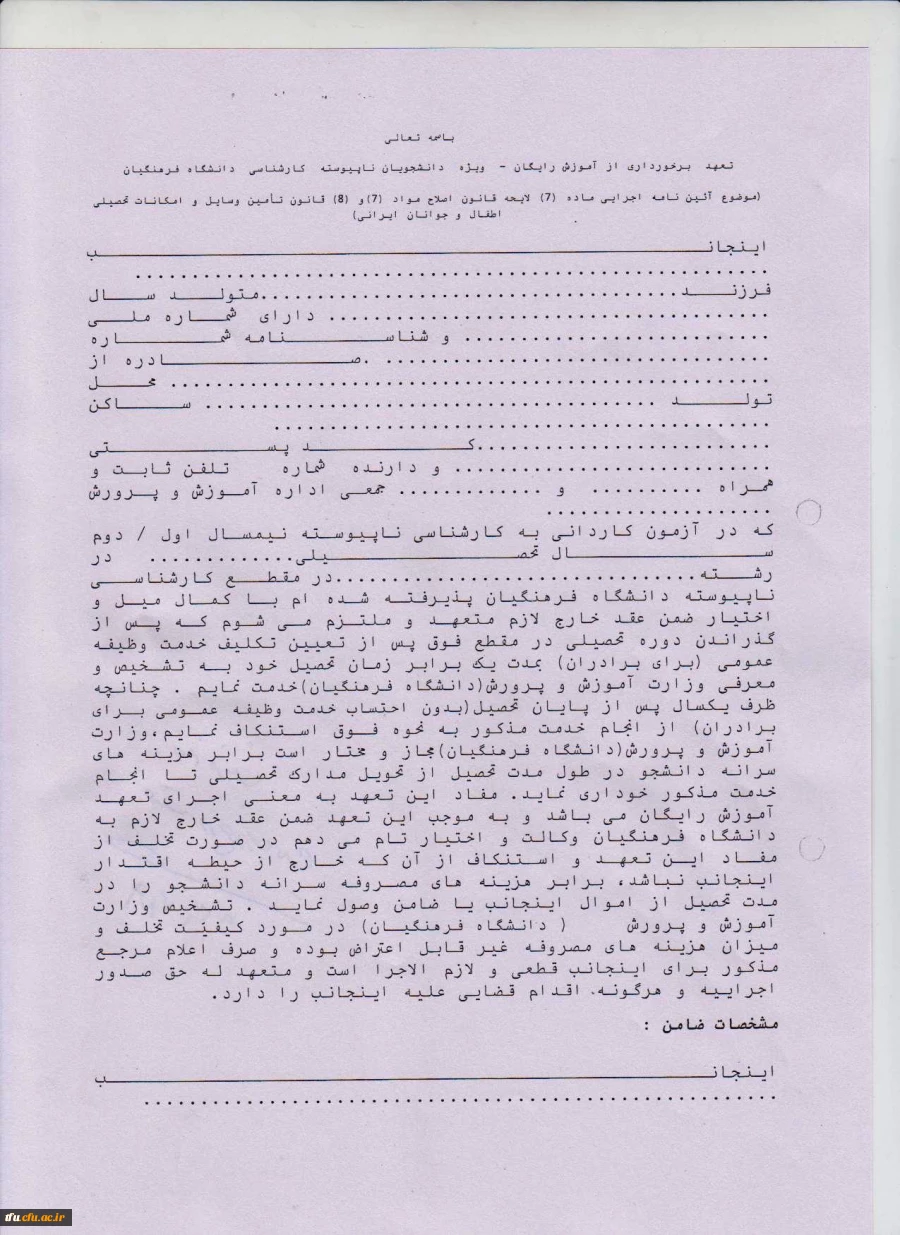 باسمه تعالی
تعهد برخورداری از آموزش رایگان - ویژه دانشجویان ناپیوسته کارشناسی دانشگاه فرهنگیان
(موضوع آئین نامه اجرایی ماده (7) لایحه قانون اصلاح مواد (7) و (8) قانون تأمین وسایل و امکانات تحصیلی
اطفال و جوانان ایرانی)
اینجانب
........................................................
فرزند......................................متولد سال
....................................... دارای شماره ملی
........................... و شناسنامه شماره
.................................. .صادره از
..................................................... محل
تولد ........................................ ساکن
............................................
..........................کد پستی
............................. و دارنده شماره تلفن ثابت و
همراه .......... و ............. جمعی اداره آموزش و پرورش
....................
که در آزمون کاردانی به کارشناسی ناپیوسته نیمسال اول / دوم
سال تحصیلی............. در
رشته................................در مقطع کارشناسی
ناپیوسته دانشگاه فرهنگیان پذیرفته شده ام با کمال میل و
اختیار ضمن عقد خارج لازم متعهد و ملتزم می شوم که پس از
گذراندن دوره تحصیلی در مقطع فوق پس از تعیین تکلیف خدمت وظیفه
عمومی (برای برادران) بمدت یک برابر زمان تحصیل خود به تشخیص و
معرفی وزارت آموزش و پرورش(دانشگاه فرهنگیان)خدمت نمایم . چنانچه
ظرف یکسال پس از پایان تحصیل(بدون احتساب خدمت وظیفه عمومی برای
برادران) از انجام خدمت مذکور به نحوه فوق استنکاف نمایم،وزارت
آموزش و پرورش(دانشگاه فرهنگیان)مجاز و مختار است برابر هزینه های
سرانه دانشجو در طول مدت تحصیل از تحویل مدارک تحصیلی تا انجام
خدمت مذکور خوداری نماید. مفاد این تعهد به معنی اجرای تعهد
آموزش رایگان می باشد و به موجب این تعهد ضمن عقد خارج لازم به
دانشگاه فرهنگیان وکالت و اختیار تام می دهم در صورت تخلف از
مفاد این تعهد و استنکاف از آن که خارج از حیطه اقتدار
اینجانب نباشد، برابر هزینه های مصروفه سرانه دانشجو را در
مدت تحصیل از اموال اینجانب یا ضامن وصول نماید . تشخیص وزارت
آموزش و پرورش ( دانشگاه فرهنگیان) در مورد کیفیّت تخلف و
میزان هزینه های مصروفه غیر قابل اعتراض بوده و صرف اعلام مرجع
مذکور برای اینجانب قطعی و لازم الاجرا است و متعهد له حق صدور
اجراییه و هرگونه، اقدام قضایی علیه اینجانب را دارد.
مشخصات ضامن :
اینجانب
........................................................
tfu.cfu.ac.ir